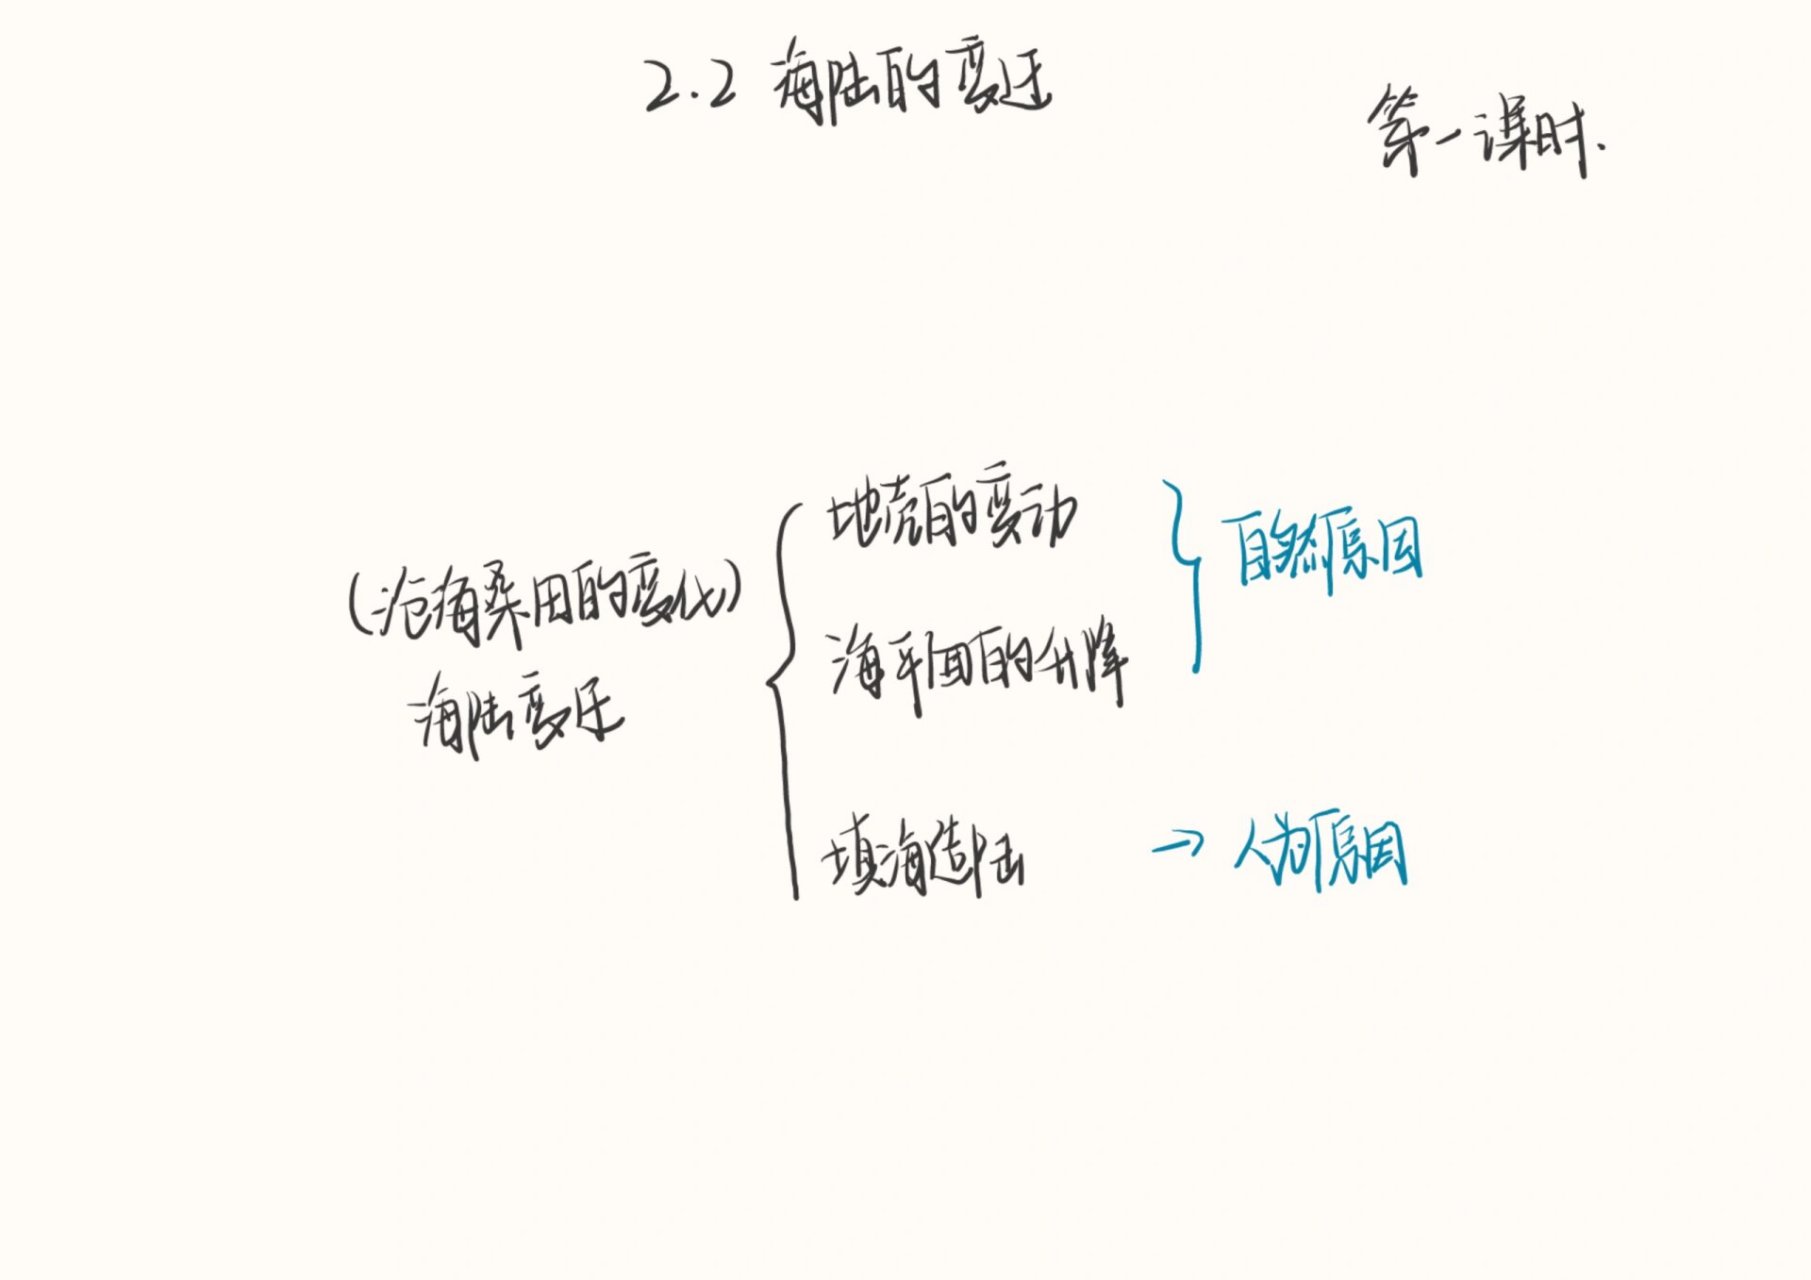 2.2 海陆的变迁
第一课时.
地壳的变动
自然原因
(沧海桑田的变化)
海平面的升降
海陆变迁
填海造陆
→ 人为原因